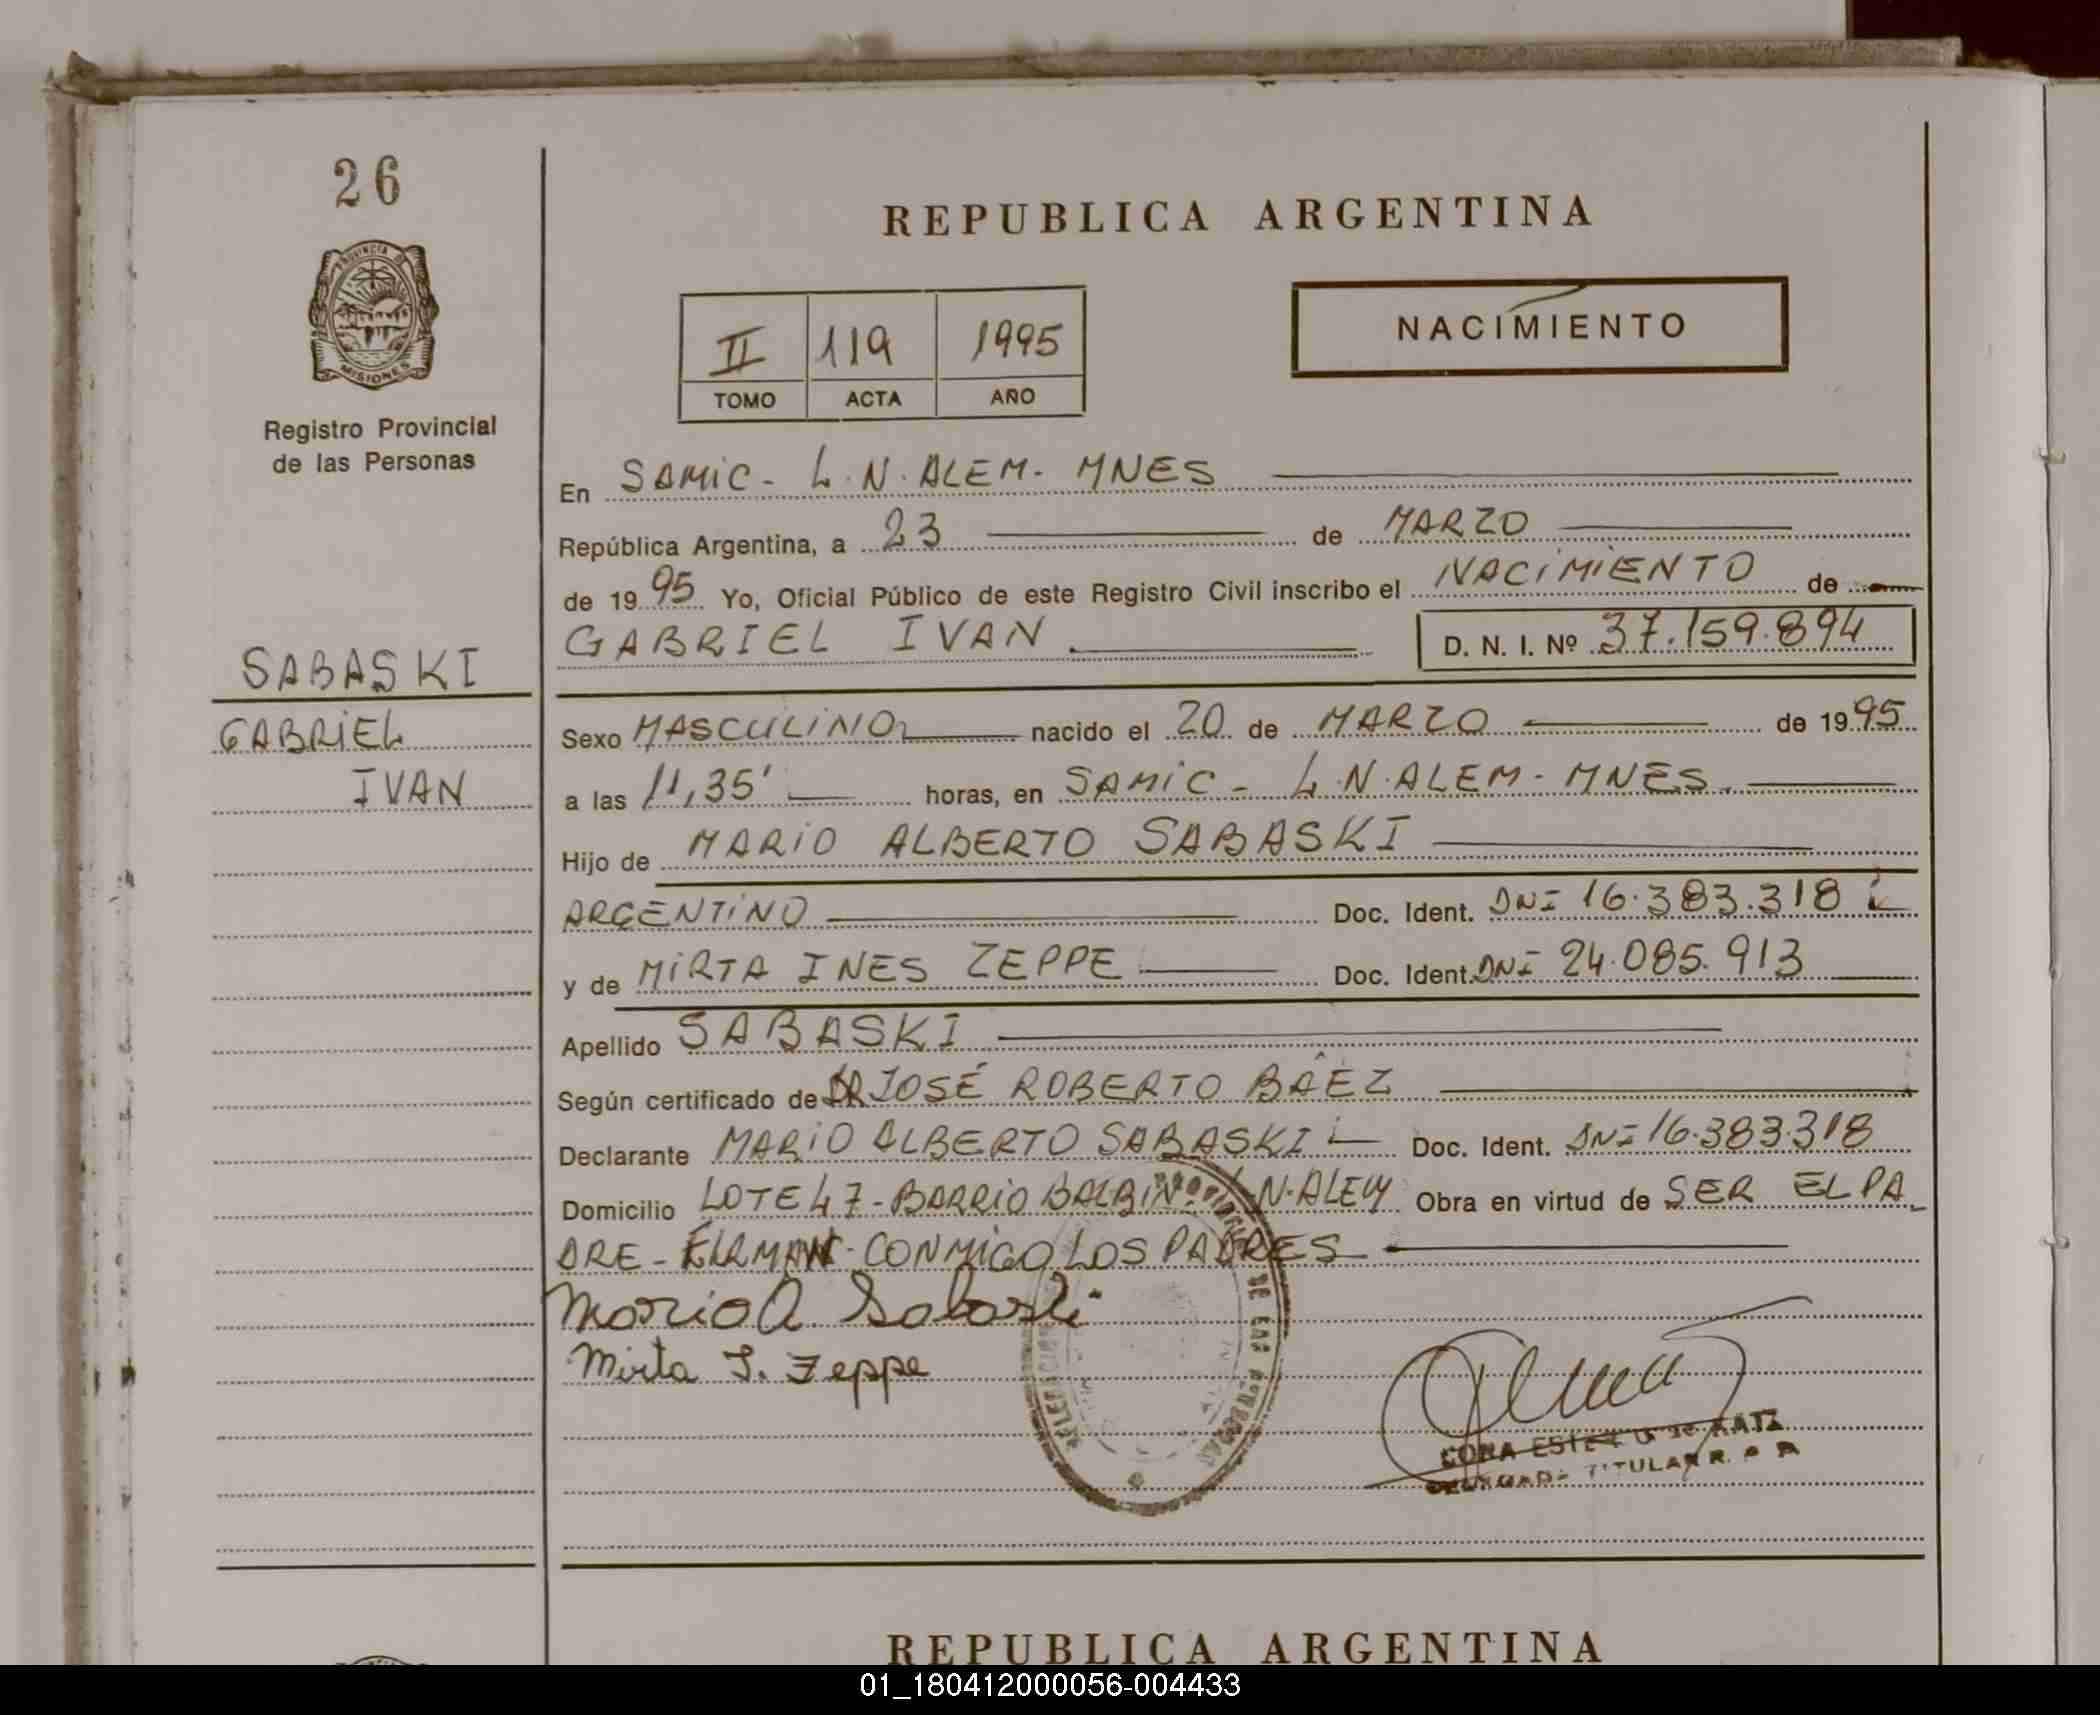 26
REPUBLICA ARGENTINA
PROVINCIA DE
MISIONES
II 119 1995
TOMO ACTA AÑO
NACIMIENTO
Registro Provincial
de las Personas
En SAMIC - L.N. ALEM - MNES
República Argentina, a 23 de MARZO
de 1995 Yo, Oficial Público de este Registro Civil inscribo el NACIMIENTO de
GABRIEL IVAN D. N. I. Nº 37.159.894
SABASKI
GABRIEL
IVAN
Sexo MASCULINO nacido el 20 de MARZO de 1995
a las 11,35' horas, en SAMIC - L.N. ALEM - MNES
Hijo de MARIO ALBERTO SABASKI
ARGENTINO Doc. Ident. DNI 16.383.318
y de MIRTA INES ZEPPE Doc. Ident. DNI 24.085.913
Apellido SABASKI
Según certificado de DR JOSÉ ROBERTO BAEZ
Declarante MARIO ALBERTO SABASKI Doc. Ident. DNI 16.383.318
Domicilio LOTE 47 - BARRIO BALBIN - L.N. ALEM Obra en virtud de SER EL PA
DRE - FIRMAN CONMIGO LOS PADRES
Mario A. Sabaski
Mirta I. Zeppe
DE LAS PERSONAS
TITULAR R. P. P.
REPUBLICA ARGENTINA
01_180412000056-004433